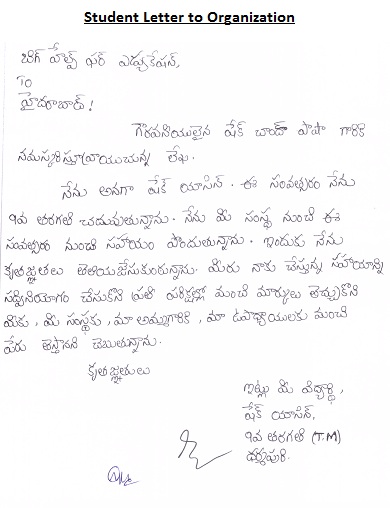 Student Letter to Organization
బిగ్ హెల్ప్ ఫర్ ఎడ్యుకేషన్,
TO
హైదరాబాద్!
గౌరవనీయులైన షేక్ చాంద్ పాషా గారికి
నమస్కరిస్తూ వ్రాయుచున్న లేఖ.
నేను అనగా షేక్ యాసిన్. ఈ సంవత్సరం నేను
9వ తరగతి చదువుతున్నాను. నేను మీ సంస్థ నుంచి ఈ
సంవత్సరం నుంచి సహాయం పొందుతున్నాను. ఇందుకు నేను
కృతజ్ఞతలు తెలియజేసుకుంటున్నాను. మీరు నాకు చేస్తున్న సహాయాన్ని
సద్వినియోగం చేసుకొని ప్రతి పరీక్షల్లో మంచి మార్కులు తెచ్చుకొని
మీకు, మీ సంస్థకు, మా అమ్మగారికి, మా ఉపాధ్యాయులకు మంచి
పేరు తెస్తానని చెబుతున్నాను.
కృతజ్ఞతలు
ఇట్లు మీ విద్యార్థి,
షేక్ యాసిన్,
9వ తరగతి (T.M)
ధర్మపురి.